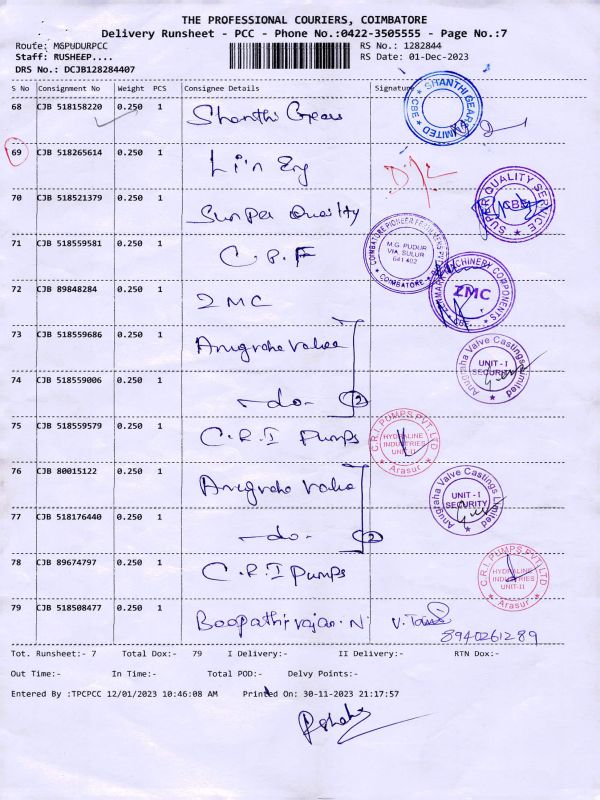 THE PROFESSIONAL COURIERS, COIMBATORE
Delivery Runsheet - PCC - Phone No.:0422-3505555 - Page No.:7
Route: MGPUDURPCC RS No.: 1282844
Staff: RUSHEEP.... RS Date: 01-Dec-2023
DRS No.: DCJB128284407
S No Consignment No Weight PCS Consignee Details Signature
68 CJB 518158220 0.250 1 Shanthi Gears SHANTHI GEARS LIMITED CBE
69 CJB 518265614 0.250 1 D/L
70 CJB 518521379 0.250 1 Super Quality SUPER QUALITY SERVICE CBE
71 CJB 518559581 0.250 1 C.P.F COIMBATORE PIONEER M.G. PUDUR VIA. SULUR 641 402 COIMBATORE
72 CJB 89848284 0.250 1 ZMC MACHINERY COMPONENTS ZMC
73 CJB 518559686 0.250 1 Anugraha Valve Anugraha Valve Castings Limited UNIT - I SECURITY
74 CJB 518559006 0.250 1 -do- 2
75 CJB 518559579 0.250 1 C.R.I Pumps C.R.I. PUMPS PVT. LTD HYDRALINE INDUSTRIES UNIT-II Arasur
76 CJB 80015122 0.250 1 Anugraha Valve Anugraha Valve Castings Limited UNIT - I SECURITY
77 CJB 518176440 0.250 1 -do- 2
78 CJB 89674797 0.250 1 C.R.I Pumps C.R.I. PUMPS PVT. LTD HYDRALINE INDUSTRIES UNIT-II Arasur
79 CJB 518508477 0.250 1 Boopathirajan.N
8940261289
Tot. Runsheet:- 7 Total Dox:- 79 I Delivery:- II Delivery:- RTN Dox:-
Out Time:- In Time:- Total POD:- Delvy Points:-
Entered By :TPCPCC 12/01/2023 10:46:08 AM Printed On: 30-11-2023 21:17:57